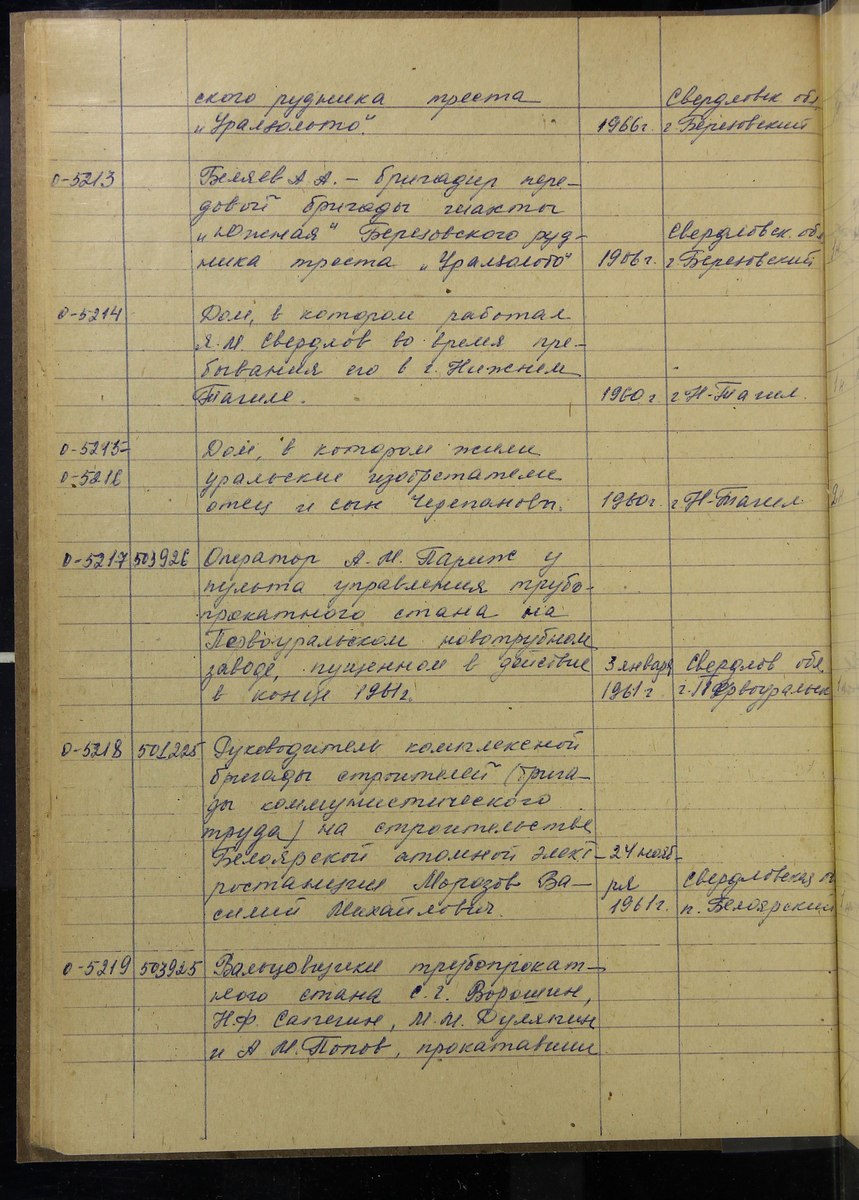 ского рудника треста Свердловск. обл.
„Уралзолото“. 1966г. г Березовский
0-5213 Беляев А А. – бригадир пере-
довой бригады шахты
„Южная“ Березовского руд- Свердловск. обл
ника треста „Уралзолото“ 1966г. г Березовский
0-5214 Дом, в котором работал
Я. М. Свердлов во время пре-
бывания его в г. Нижнем
Тагиле. 1960г. г Н-Тагил.
0-5215- Дом, в котором жили
0-5216 уральские изобретатели
отец и сын Черепановы. 1960г. г. Н-Тагил
0-5217 503926 Оператор А. М. Париж у
пульта управления трубо-
прокатного стана на
Первоуральском новотрубном
заводе, пущенном в действие 3 января Свердлов обл
в конце 1961г. 1961г г. Первоуральск
0-5218 501225 Руководитель комплексной
бригады строителей (брига-
ды коммунистического
труда) на строительстве
Белоярской атомной элект- 24 нояб-
ростанции Морозов Ва- ря Свердловская о
силий Михайлович. 1961г. п. Белоярский
0-5219 503925 Вальцовщики трубопрокат-
ного стана С. Г. Ворошин,
Н. Ф. Сапегин, М. М. Дулякин
и А М. Попов, прокатавшие